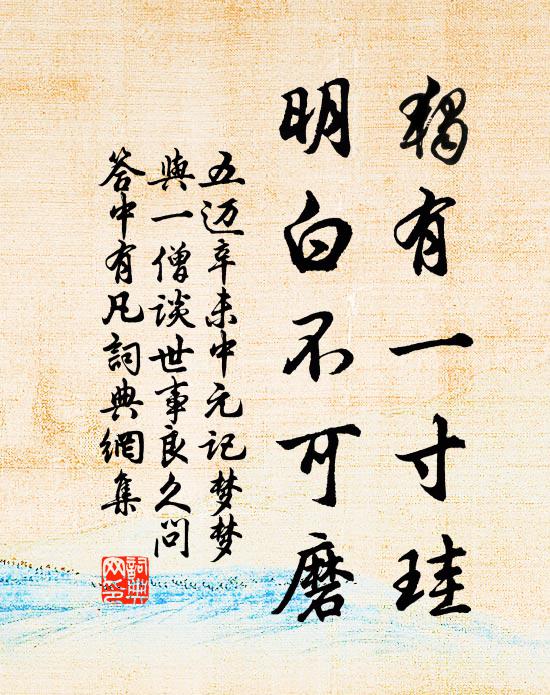 獨有一寸珪
明白不可磨
五迈辛未中元记梦梦
與一僧談世事良久问
答中有凡詞典網集
詞典网